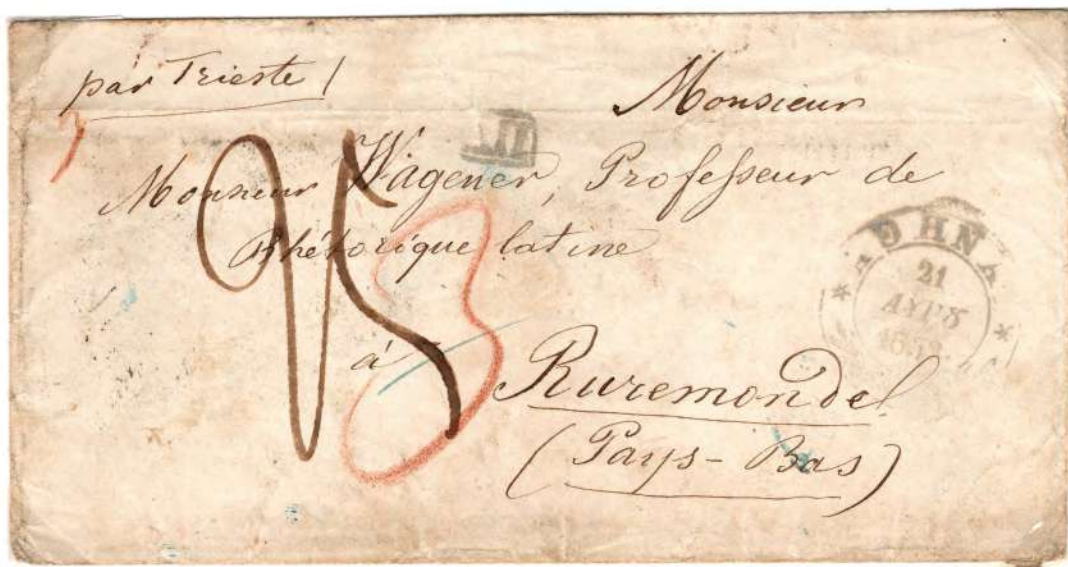 par Trieste
Monsieur
Monsieur Wagener, Professeur de
Rhétorique latine
à Ruremonde
(Pays-Bas)
95
3
ΑΘΗΝΑ
21
ΑΥΓ